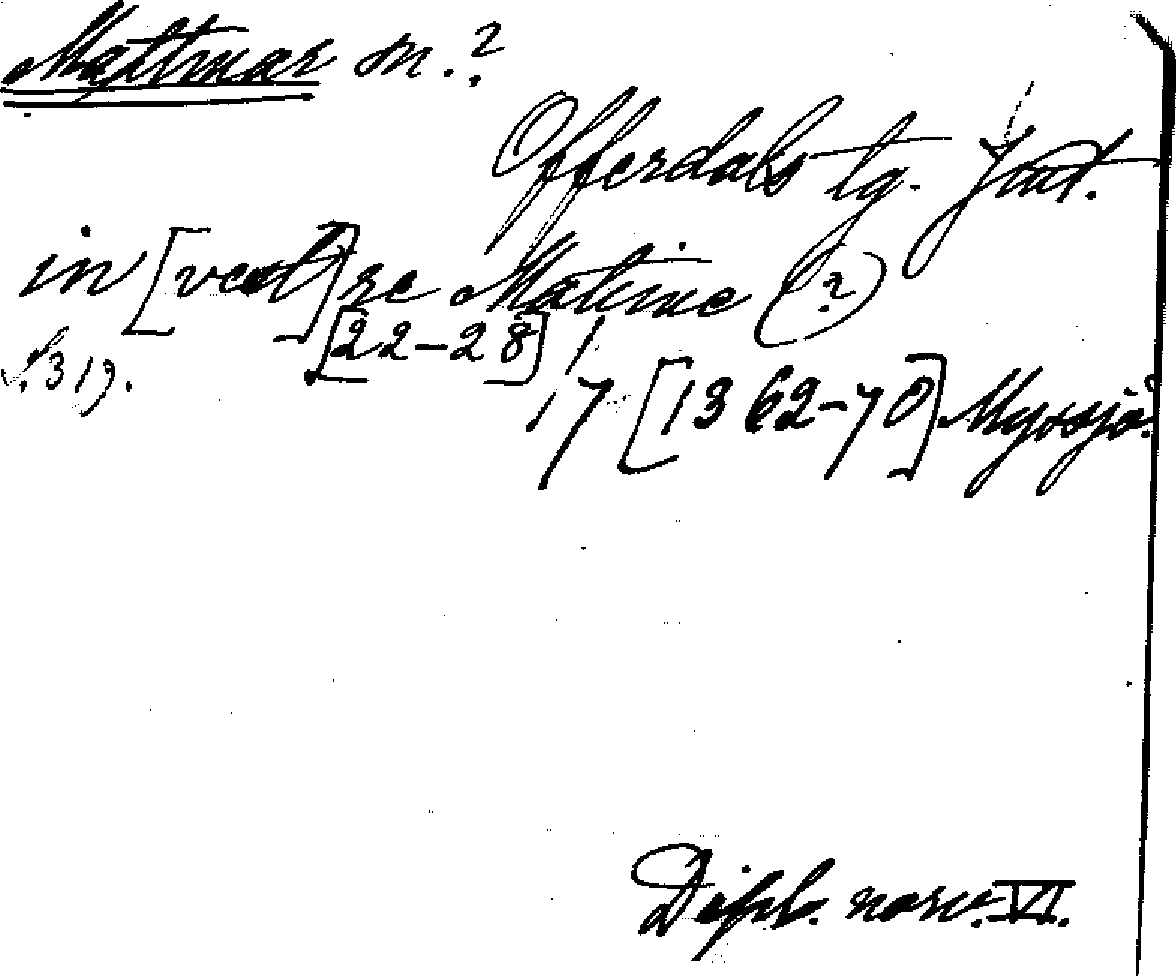 Mattmar sn.?
Offerdals tg. Jmt.
in [vest]re Matime (?)
S. 319. [22-28]/
17 [1362-70] Myssjö?
Dipl. norv. VI.